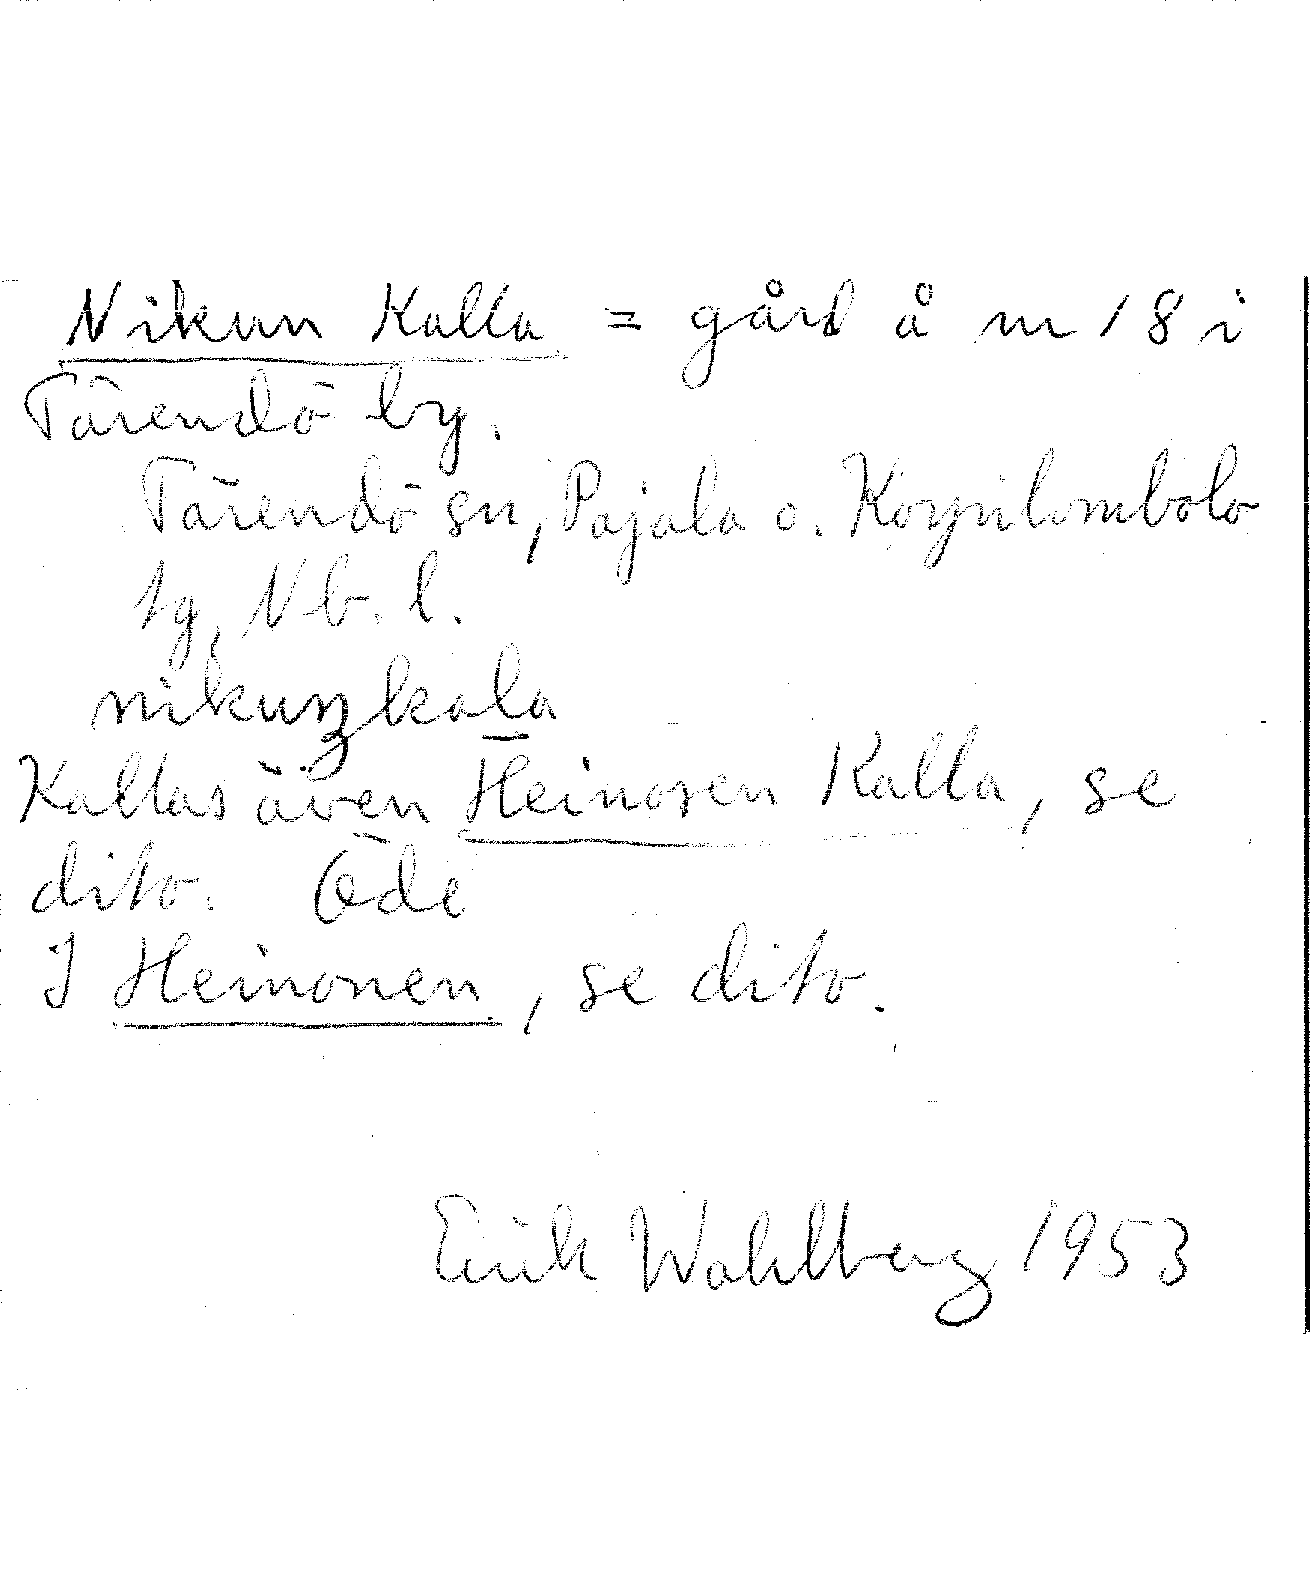 Nikun Kalla = gård å nr 18 i
Tärendö by.
Tärendö sn, Pajala o. Korpilombolo
tg, Nb. l.
nikuŋkala
Kallas även Heinosen Kalla, se
dito. Öde
I Heinonen, se dito.
Erik Wahlberg 1953